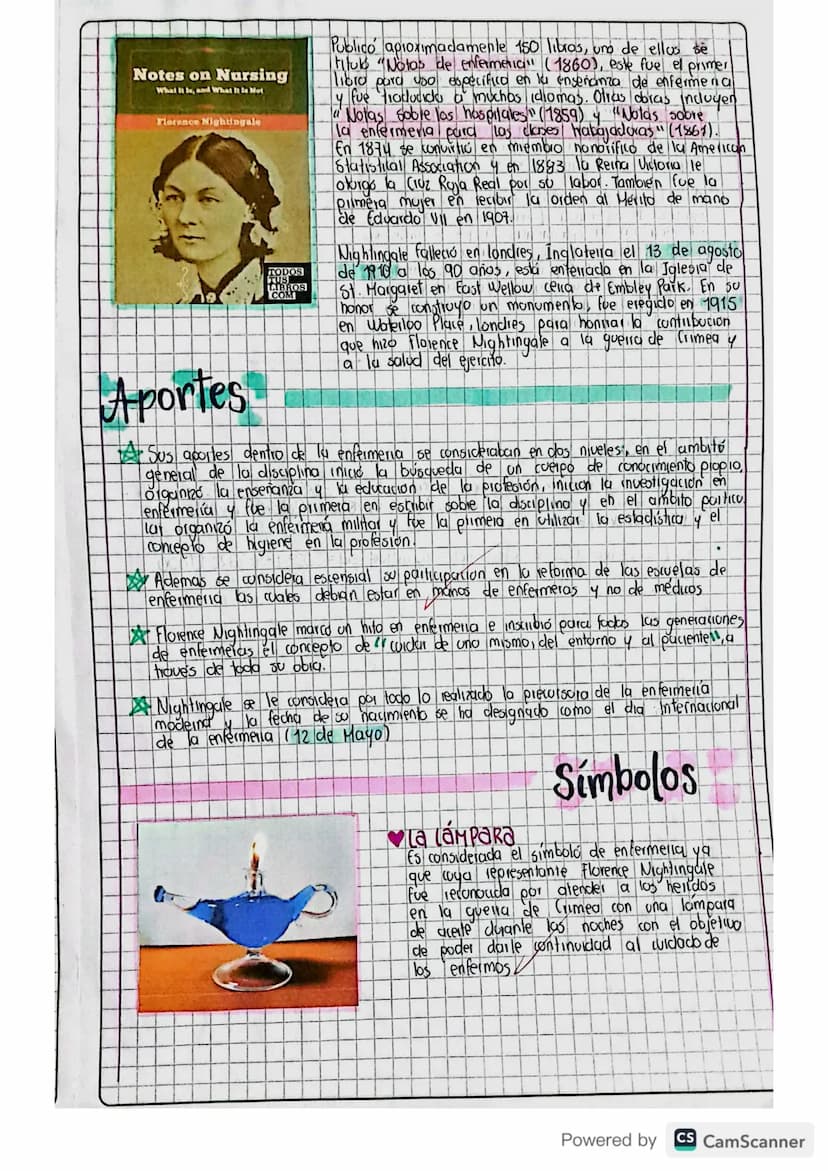 Notes on Nursing
What It Is, and What It Is Not
Florence Nightingale
TODOS
TUS
LIBROS
COM
Publicó aproximadamente 150 libros, uno de ellos se
titula "Notas de enfermeria" (1860), este fue el primer
libro para uso especifico en la enseñanza de enfermeria
y fue traducido a muchos idiomas. Otras obras incluyen
"Notas sobre los hospitales" (1859) y "Notas sobre
la enfermeria para las clases trabajadoras" (1861).
En 1874 se convirtió en miembro honorifico de la American
Statistical Association y en 1883 la Reina Victoria le
otorgó la Cruz Roja Real por su labor. También fue la
primera mujer en recibir la orden al Mérito de mano
de Eduardo VII en 1907.
Nightingale falleció en londres, Inglaterra el 13 de agosto
de 1910 a los 90 años, está enterrada en la Iglesia de
St. Margaret en East Wellow cerca de Embley Park. En su
honor se construyo un monumento, fue eregido en 1915
en Waterloo Place, Londres para honrar la contribucion
que hizo Florence Nightingale a la guerra de Crimea y
a la salud del ejercito.
Aportes
Sus aportes dentro de la enfermeria se consideraban en dos niveles, en el ambito
general de la disciplina inició la búsqueda de un cuerpo de conocimiento propio,
organizó la enseñanza y la educación de la profesión, inician la investigación en
enfermeria y fue la primera en escribir sobre la disciplina y en el ambito particu
lar organizó la enfermera militar y fue la primera en utilizar la estadística y el
concepto de higiene en la profesión.
Ademas se considera escensial su participacion en la reforma de las escuelas de
enfermeria las cuales debian estar en manos de enfermeras y no de medicos
Florence Nightingale marco un hito en enfermeria e inscribió para todas las generaciones
de enfermeras el concepto de "cuidar de uno mismo, del entorno y al paciente", a
través de toda su obra.
Nightingale se le considera por todo lo realizado la precursora de la enfermería
moderna y la fecha de su nacimiento se ha designado como el dia Internacional
de la enfermera (12 de Mayo)
Símbolos
LA LÁMPARA
Es considerada el símbolo de enfermeria ya
que cuya representante Florence Nightingale
fue reconocida por atender a los heridos
en la guerra de Crimea con una lámpara
de aceite durante las noches con el objetivo
de poder darle continuidad al cuidado de
los enfermos
Powered by CS CamScanner